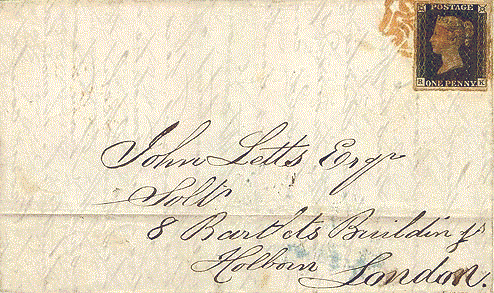 POSTAGE
ONE PENNY
John Letts Esqr
Solr
8 Bartlets Buildings
Holborn London.